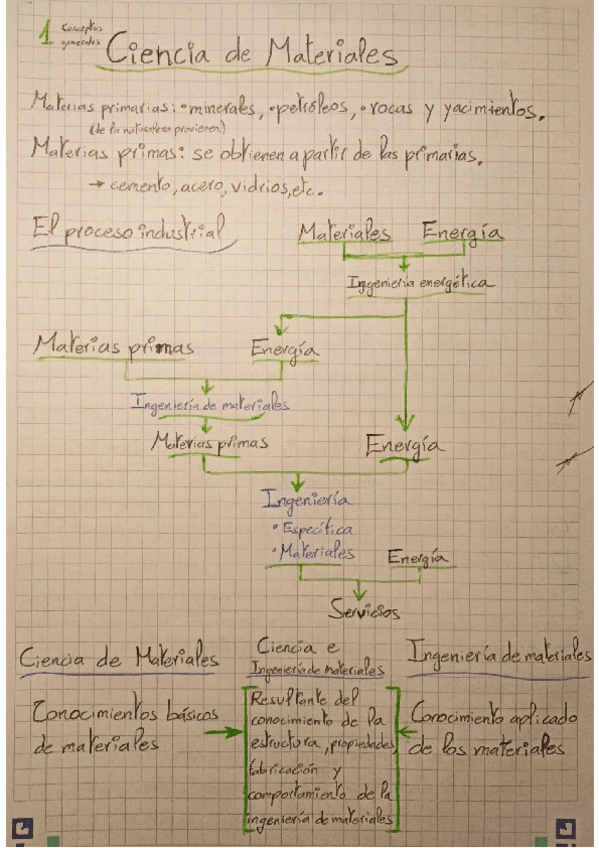 1 Conceptos generales
Ciencia de Materiales
Materias primarias: • minerales, • petróleos, • rocas y yacimientos.
(de la naturaleza provienen)
Materias primas: se obtienen a partir de las primarias.
→ cemento, acero, vidrios, etc.
El proceso industrial
Materiales Energía
Ingeniería energética
Materias primas Energía
Ingeniería de materiales
Materias primas Energía
Ingeniería
• Específica
• Materiales Energía
Servicios
Ciencia de Materiales
Conocimientos básicos
de materiales
Ciencia e
Ingeniería de materiales
Resultante del
conocimiento de la
estructura, propiedades,
fabricación y
comportamiento de la
ingeniería de materiales
Ingeniería de materiales
Conocimiento aplicado
de los materiales